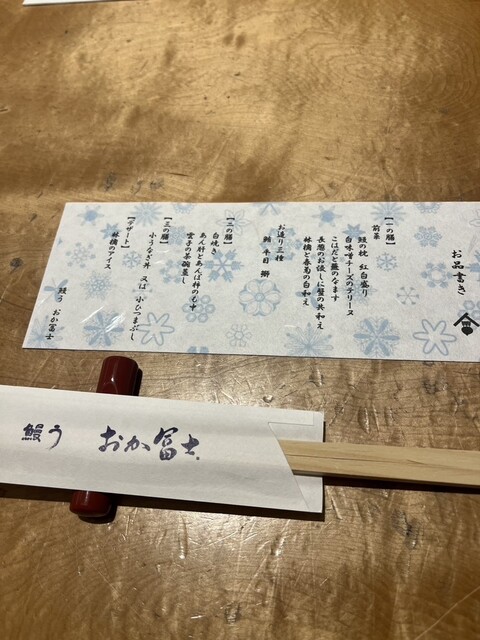 お品書き
【一の膳】
前菜
鰻の枕 紅白盛り
白味噌チーズのテリーヌ
こはだと蕪のなます
長葱のお浸しに蟹の共和え
林檎と春菊の白和え
お造り三種
鮪 平目 鰤
【二の膳】
白焼き
あん肝とあんぽ柿のもなか
雲子の茶碗蒸し
【三の膳】
小うなぎ丼 又は 小ひつまぶし
【デザート】
林檎のアイス
鰻う おか冨士
鰻う おか冨士